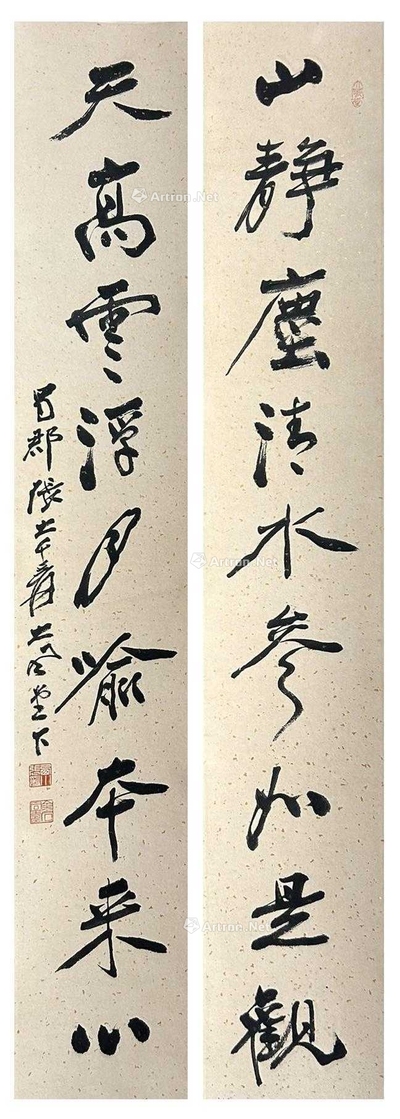 山靜塵清水參如是觀
天高雲浮月喻本来心
蜀郡張大千爰大風堂下
Artron.Net
Artron.Net
Artron.Net
Artron.Net